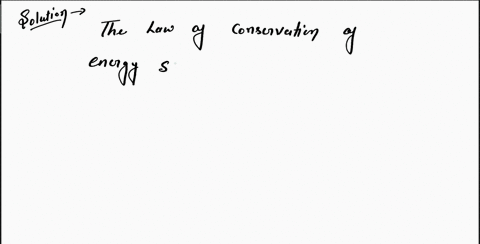 Solution → The Law of conservation of
energy s